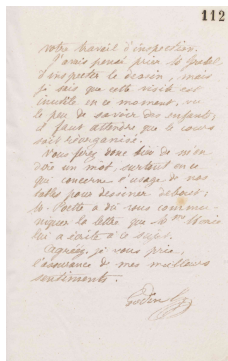 112
votre travail d'inspection.
J'avais pensé prier M.
d'inspecter le dessin, mais
je sais que cette visite est
inutile en ce moment, vu
le peu de savoir des enfants;
il faut attendre que le cours
soit réorganisé.
Vous ferez donc bien de m'en
dire un mot, surtout en ce
qui concerne l'usage de nos
tables pour dessiner debout;
a dû vous commu-
niquer la lettre que le
lui a écrite à ce sujet.
Agréez, je vous prie,
l'assurance de mes meilleurs
sentiments.